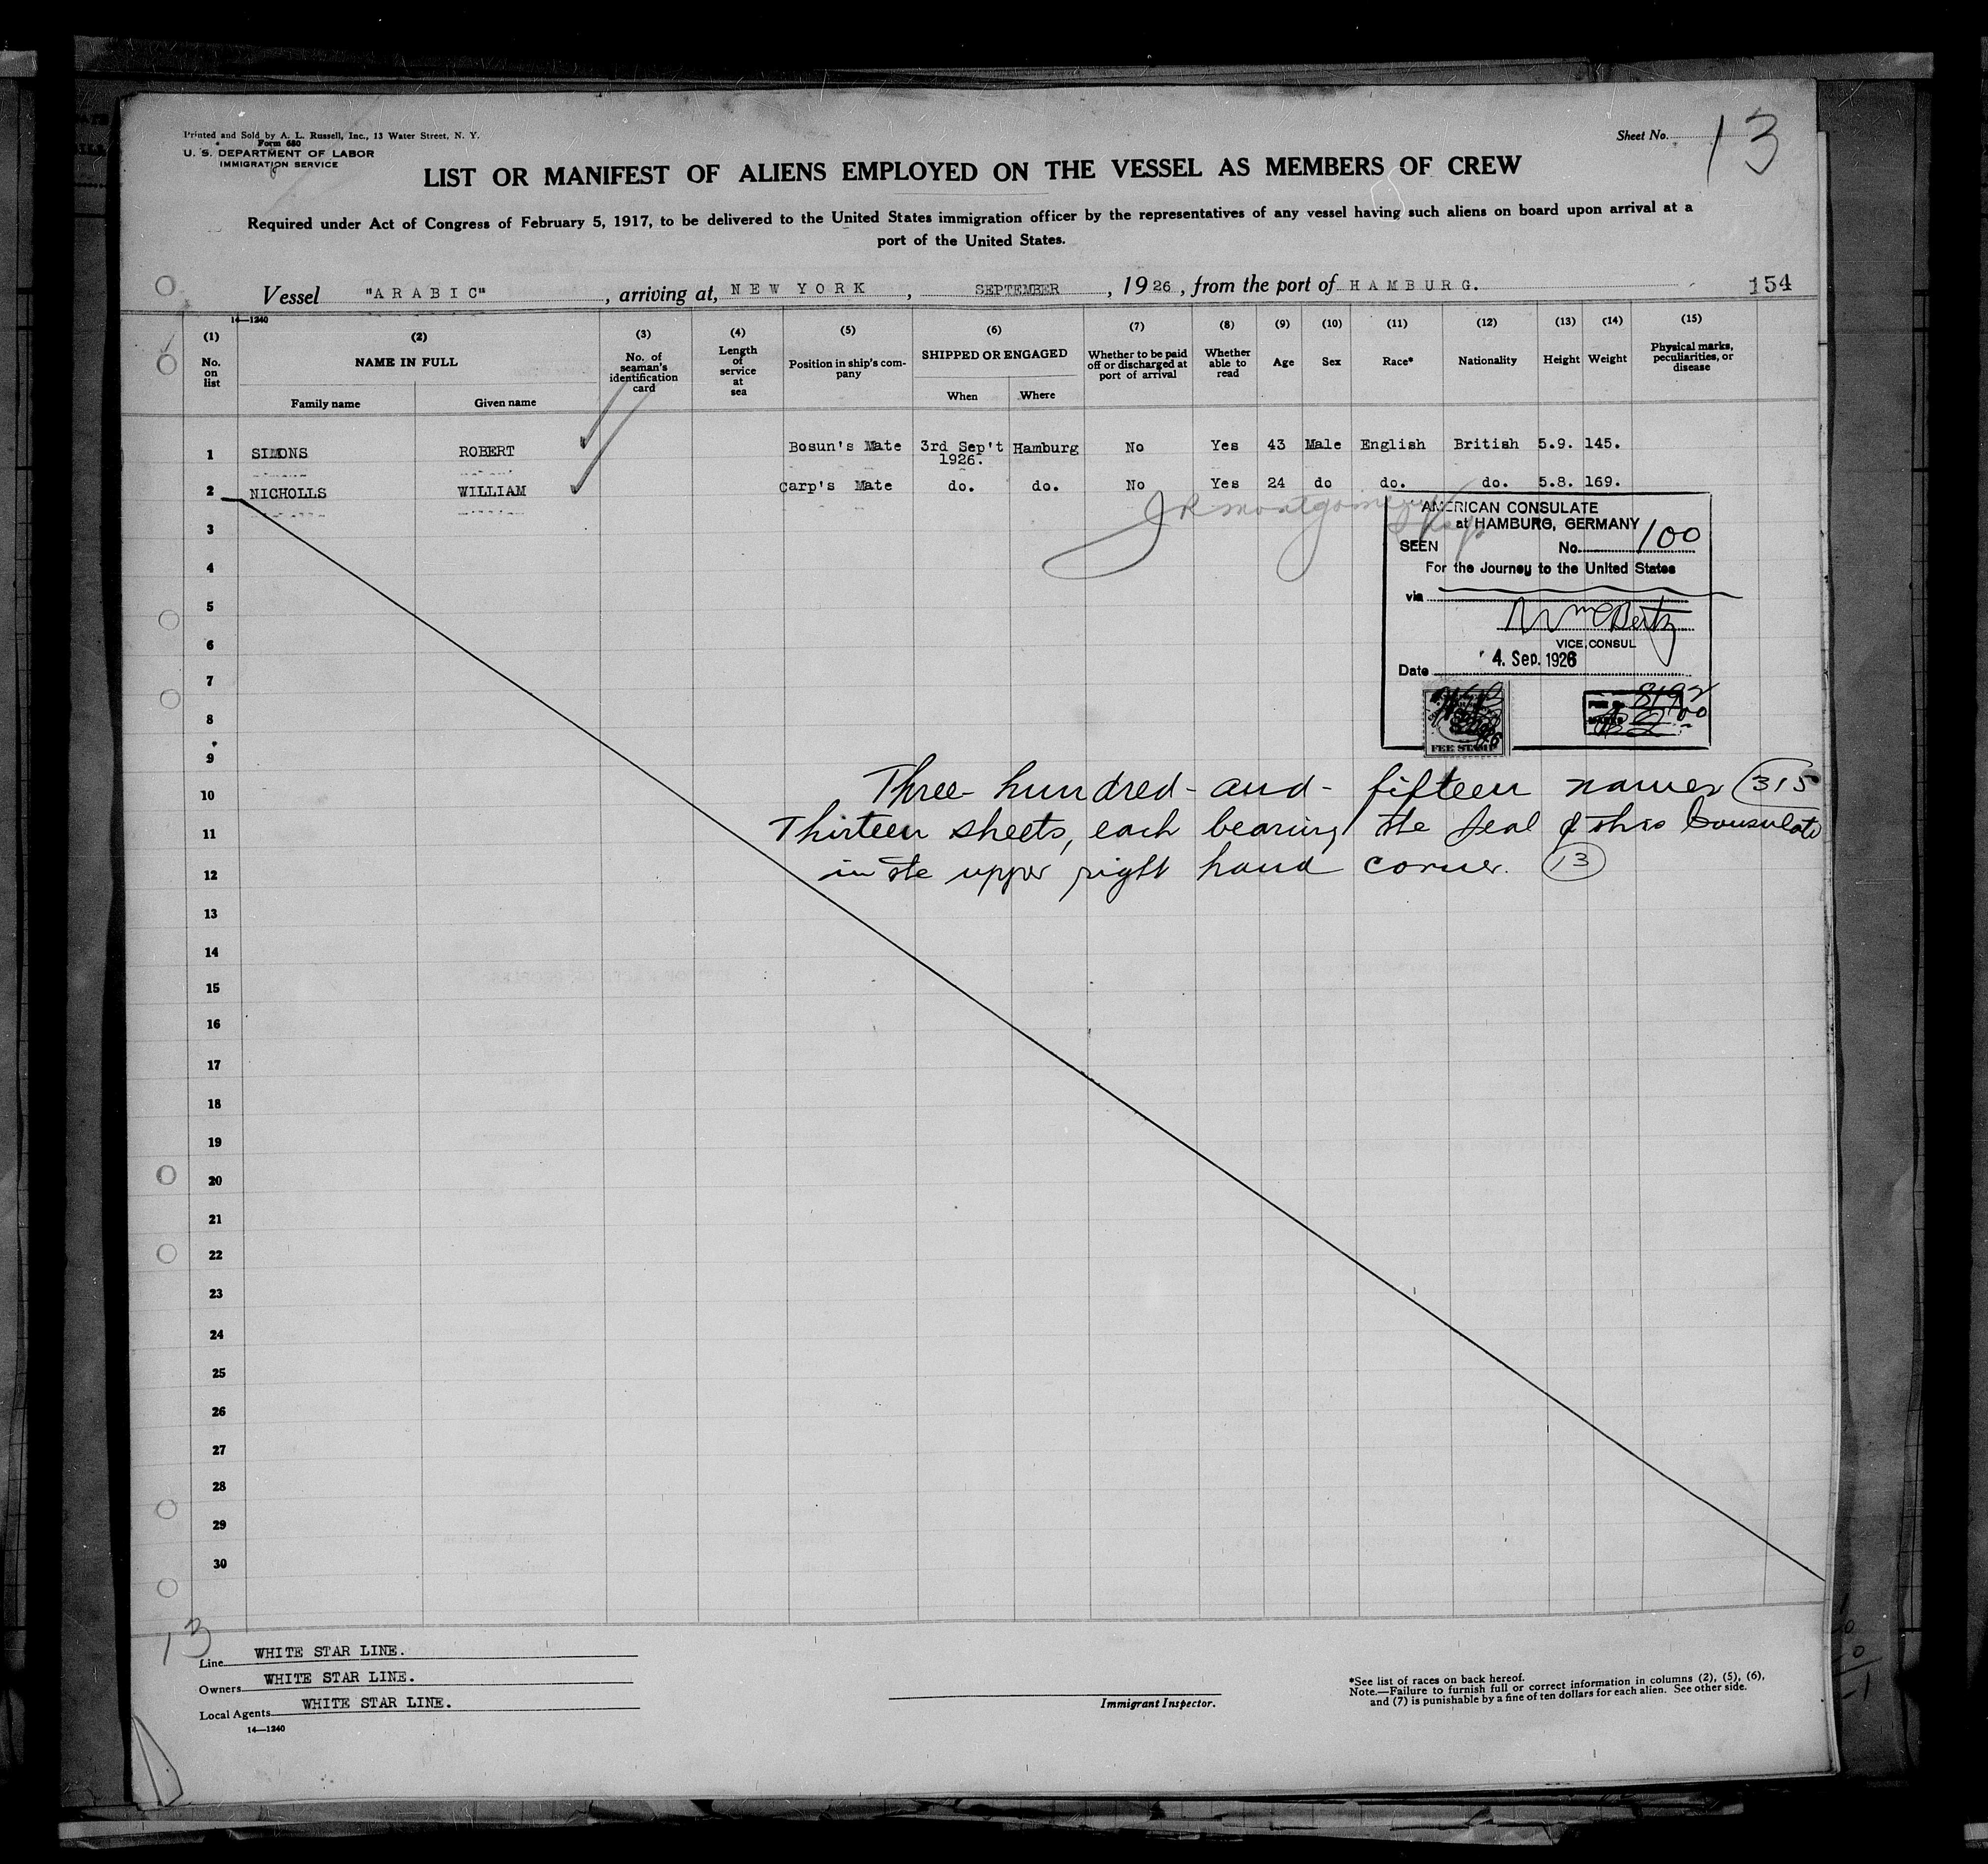 Printed and Sold by A. L. Russell, Inc., 13 Water Street, N. Y.
Form 680
U. S. DEPARTMENT OF LABOR
IMMIGRATION SERVICE
Sheet No. 13
LIST OR MANIFEST OF ALIENS EMPLOYED ON THE VESSEL AS MEMBERS OF CREW
Required under Act of Congress of February 5, 1917, to be delivered to the United States immigration officer by the representatives of any vessel having such aliens on board upon arrival at a
port of the United States.
Vessel "ARABIC", arriving at, NEW YORK, SEPTEMBER, 1926, from the port of HAMBURG.
154
14—1240
(1) (2) (3) (4) (5) (6) (7) (8) (9) (10) (11) (12) (13) (14) (15)
No. on list
NAME IN FULL
Family name
Given name
No. of seaman's identification card
Length of service at sea
Position in ship's company
SHIPPED OR ENGAGED
When
Where
Whether to be paid off or discharged at port of arrival
Whether able to read
Age
Sex
Race*
Nationality
Height
Weight
Physical marks, peculiarities, or disease
1 SIMONS ROBERT Bosun's Mate 3rd Sep't 1926. Hamburg No Yes 43 Male English British 5.9. 145.
2 NICHOLLS WILLIAM Carp's Mate do. do. No Yes 24 do do. do. 5.8. 169.
3
4
5
6
7
8
9
10
11
12
13
14
15
16
17
18
19
20
21
22
23
24
25
26
27
28
29
30
JR Montgomery
AMERICAN CONSULATE
at HAMBURG, GERMANY
SEEN No. 100
For the Journey to the United States
via
VICE CONSUL
Date 4. Sep. 1926
FEE STAMP
Three-hundred-and-fifteen names 315
Thirteen sheets, each bearing the seal of this Consulate
in the upper right hand corner. 13
13
Line WHITE STAR LINE.
Owners WHITE STAR LINE.
Local Agents WHITE STAR LINE.
14—1240
Immigrant Inspector.
*See list of races on back hereof.
Note.—Failure to furnish full or correct information in columns (2), (5), (6),
and (7) is punishable by a fine of ten dollars for each alien. See other side.